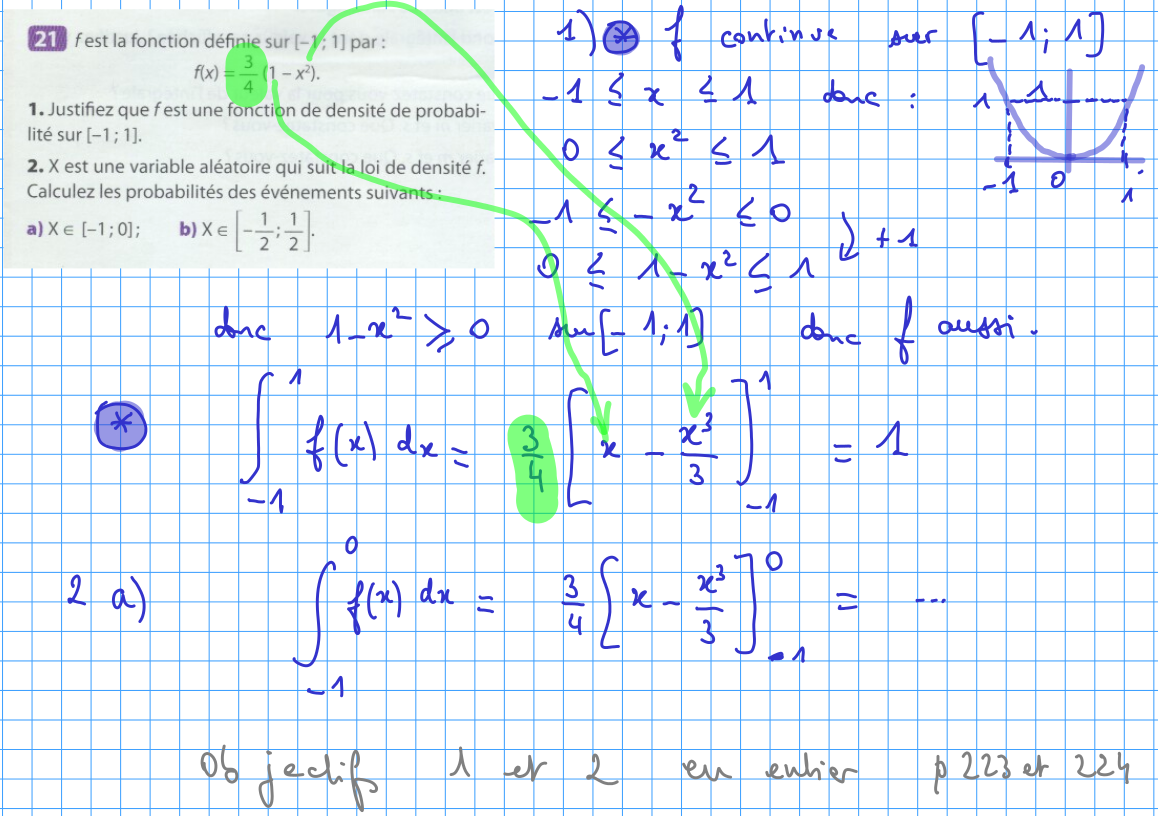 21 f est la fonction définie sur [−1 ; 1] par :
f(x) = 3/4 (1 − x²).
1. Justifiez que f est une fonction de densité de probabi-
lité sur [−1 ; 1].
2. X est une variable aléatoire qui suit la loi de densité f.
Calculez les probabilités des événements suivants :
a) X ∈ [−1 ; 0] ; b) X ∈ [−1/2 ; 1/2].
1) * f continue sur [−1 ; 1]
−1 ≤ x ≤ 1 donc :
0 ≤ x² ≤ 1
−1 ≤ −x² ≤ 0
+1
0 ≤ 1 − x² ≤ 1
1 1
−1 0 1
donc 1 − x² ⩾ 0 sur [−1 ; 1] donc f aussi.
* ∫_{−1}^{1} f(x) dx = 3/4 [x − x³/3]_{−1}^{1} = 1
2 a) ∫_{−1}^{0} f(x) dx = 3/4 [x − x³/3]_{−1}^{0} = ...
Objectifs 1 et 2 en entier p 223 et 224